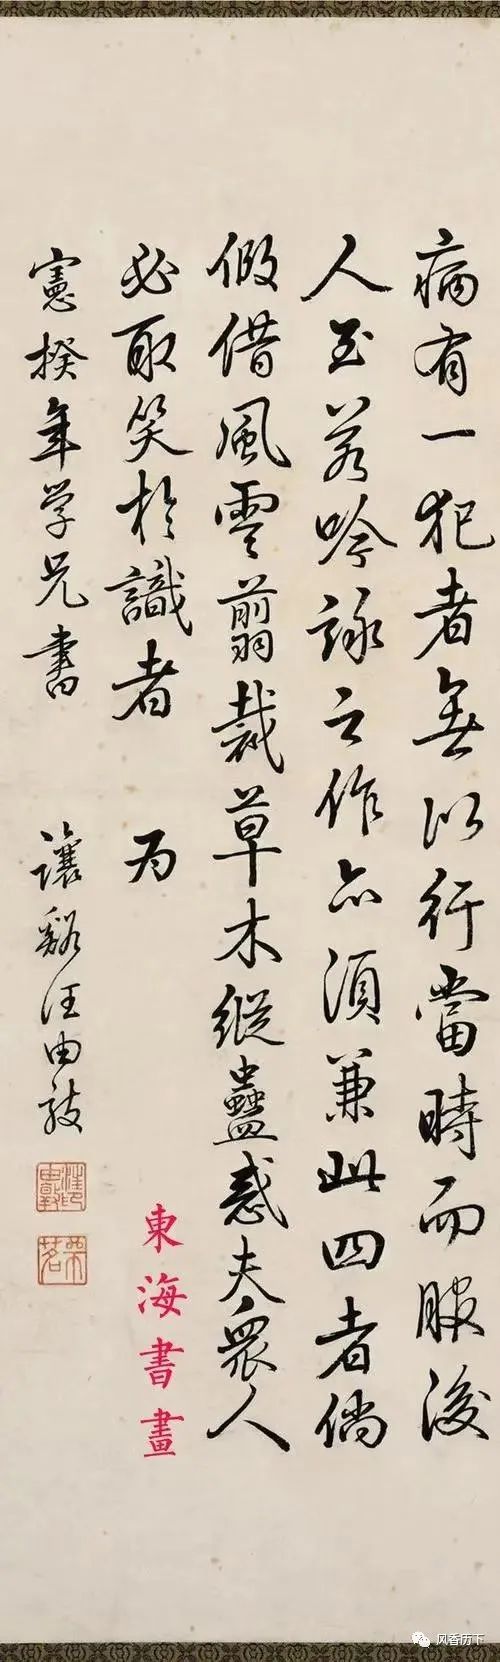 病有一犯者無以行當時而服後
人至若吟詠之作亦須兼此四者倘
假借風雲翦裁草木縱蠱惑夫衆人
必取笑於識者 為
憲揆年学兄書 讓谿汪由敦
東海書畫
风香历下